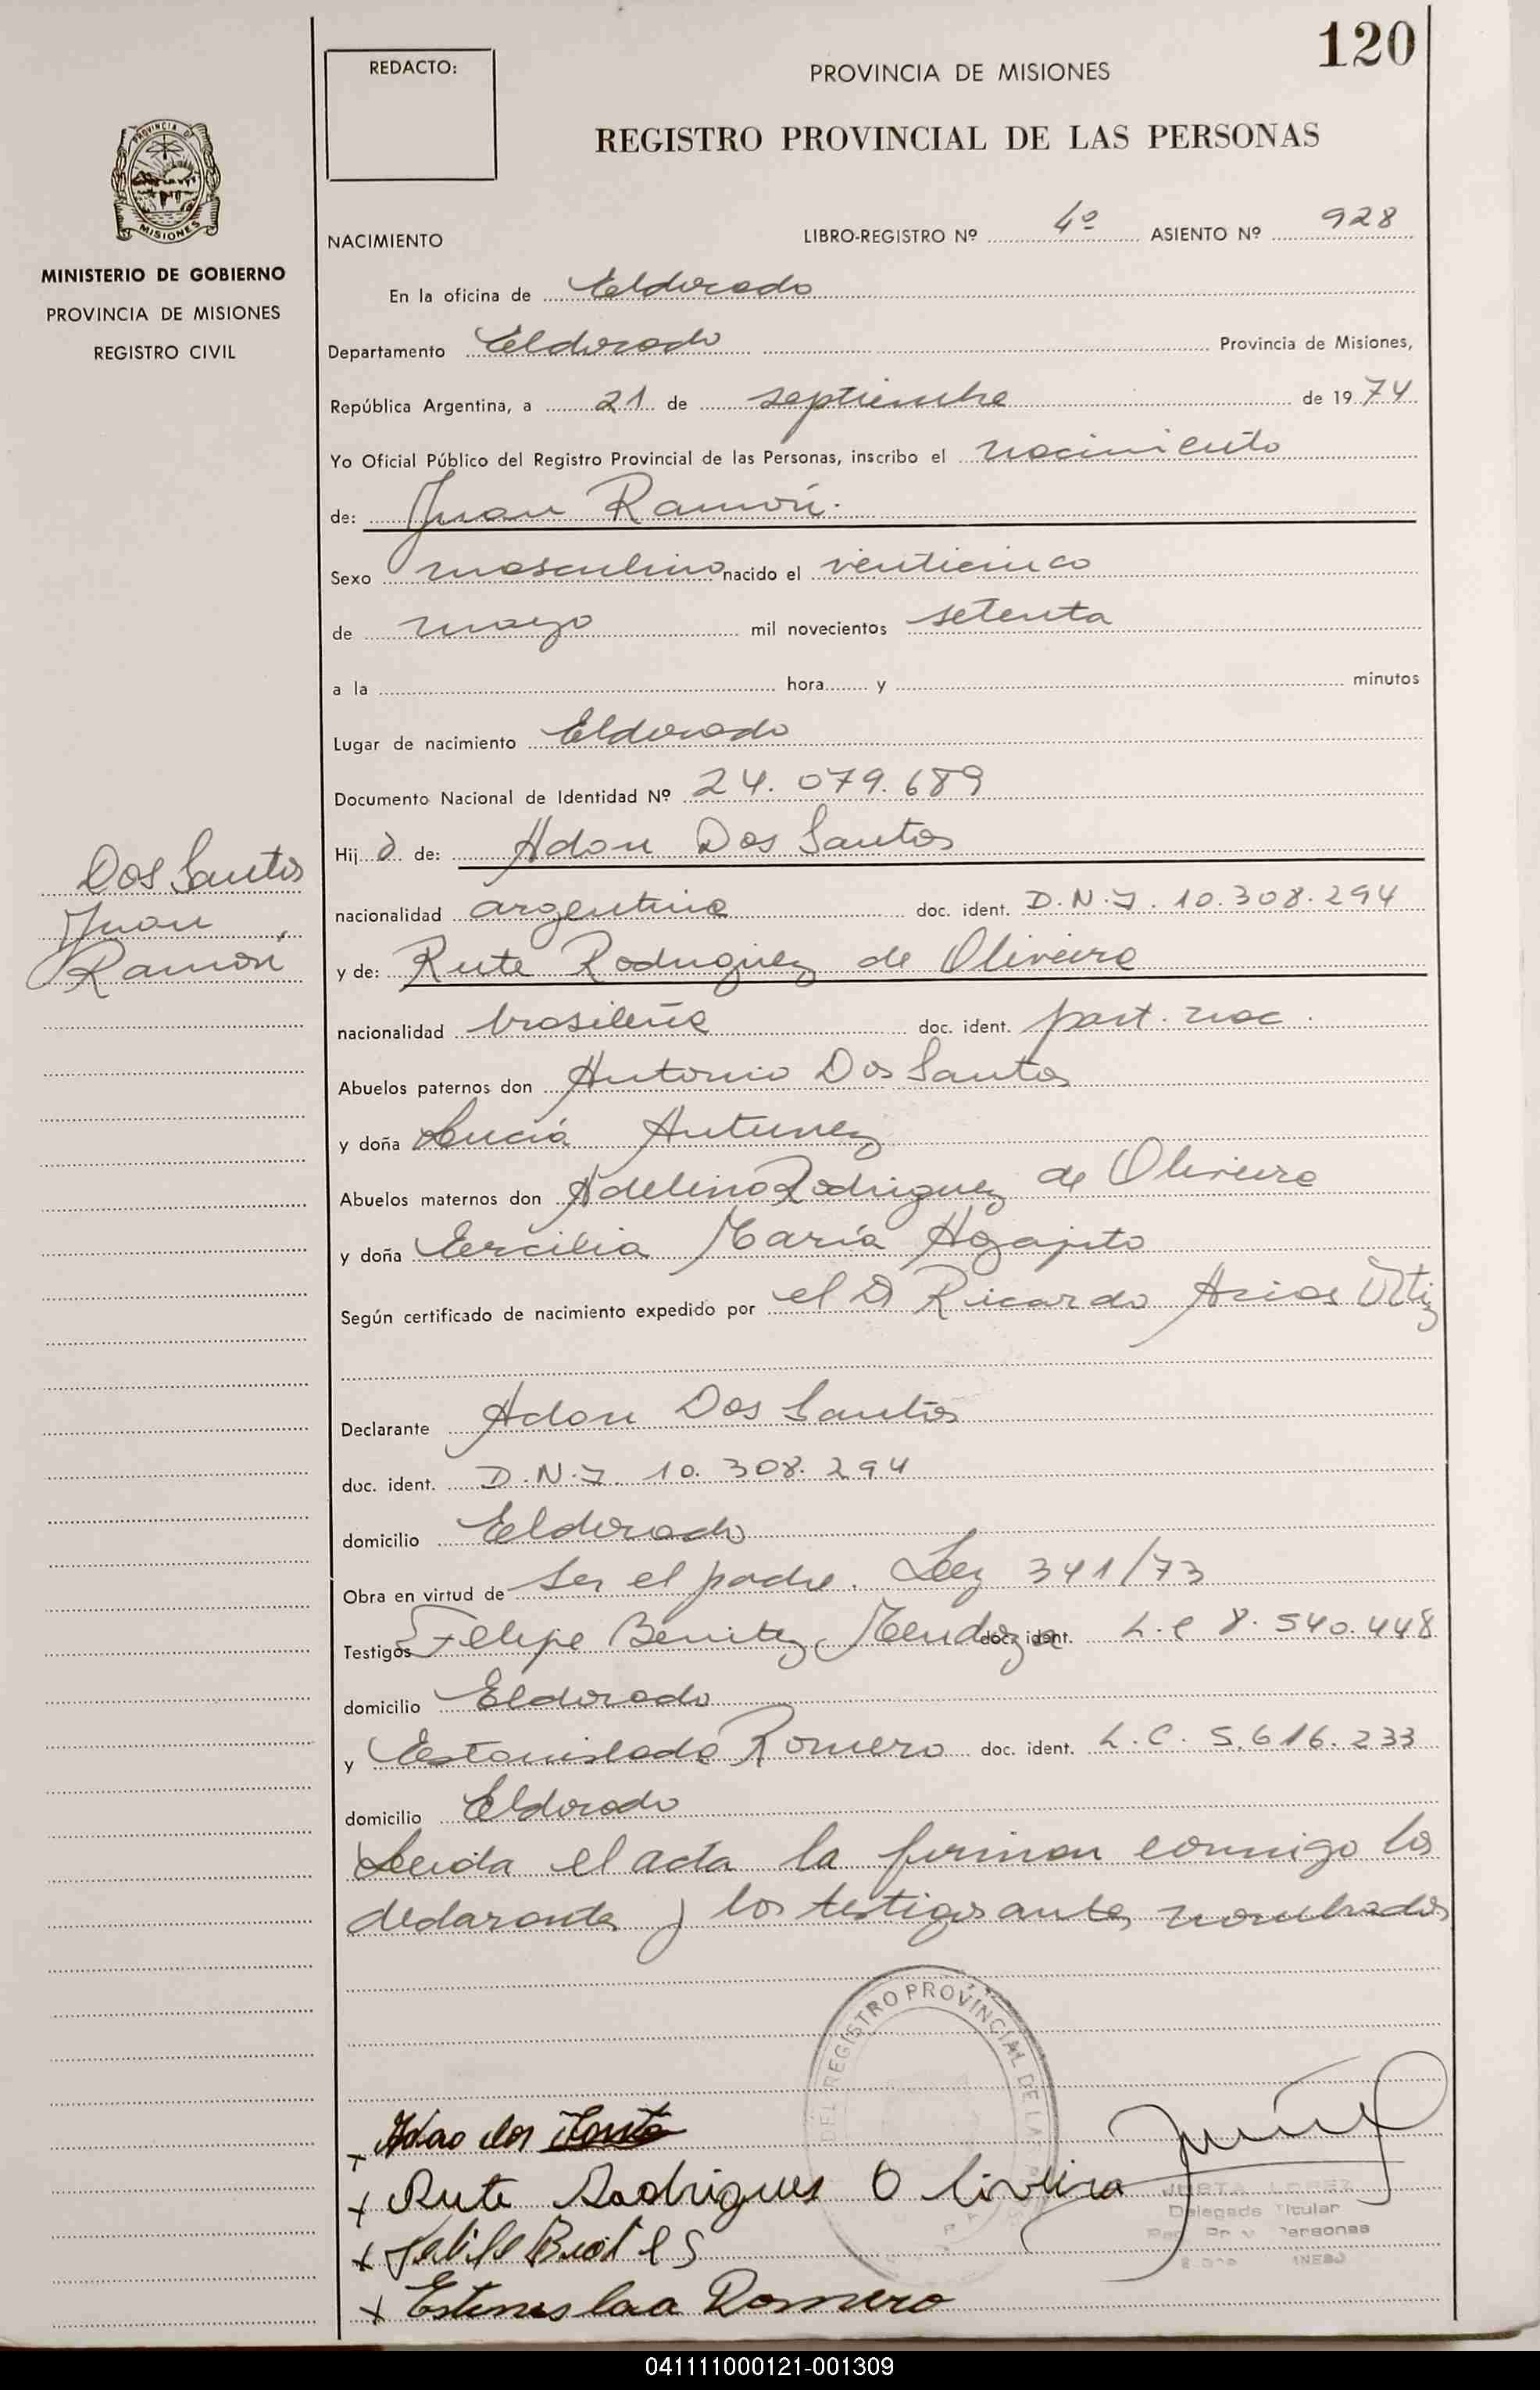 120
REDACTO:
PROVINCIA DE MISIONES
REGISTRO PROVINCIAL DE LAS PERSONAS
PROVINCIA DE
MISIONES
MINISTERIO DE GOBIERNO
PROVINCIA DE MISIONES
REGISTRO CIVIL
NACIMIENTO
LIBRO-REGISTRO Nº 4º ASIENTO Nº 928
En la oficina de Eldorado
Departamento Eldorado Provincia de Misiones,
República Argentina, a 21 de septiembre de 1974
Yo Oficial Público del Registro Provincial de las Personas, inscribo el nacimiento
de: Juan Ramón.
Sexo masculino nacido el venticinco
de mayo mil novecientos setenta
a la hora y minutos
Lugar de nacimiento Eldorado
Documento Nacional de Identidad Nº 24.079.689
Hijo de: Adon Dos Santos
Dos Santos
Juan
Ramón
nacionalidad argentina doc. ident. D.N.I. 10.308.294
y de: Rute Rodriguez de Oliveira
nacionalidad brasileña doc. ident. part. nac.
Abuelos paternos don Antonio Dos Santos
y doña Lucia Antunez
Abuelos maternos don Adelino Rodriguez de Oliveira
y doña Ercilia María Agapito
Según certificado de nacimiento expedido por el D Ricardo Arias Ortiz
Declarante Adon Dos Santos
doc. ident. D.N.I. 10.308.294
domicilio Eldorado
Obra en virtud de ser el padre. Ley 341/73
Testigos Felipe Benitez Mendoza doc. ident. L.e 8.540.448
domicilio Eldorado
y Estanislada Romero doc. ident. L.C. 5.616.233
domicilio Eldorado
Leida el acta la firman conmigo los
declarantes y los testigos antes nombrados
DEL REGISTRO PROVINCIAL DE LA
x Adao dos
x Rute Rodrigues Oliveira
x
x Romero
LOPEZ
Delegado Titular
Personas
041111000121-001309